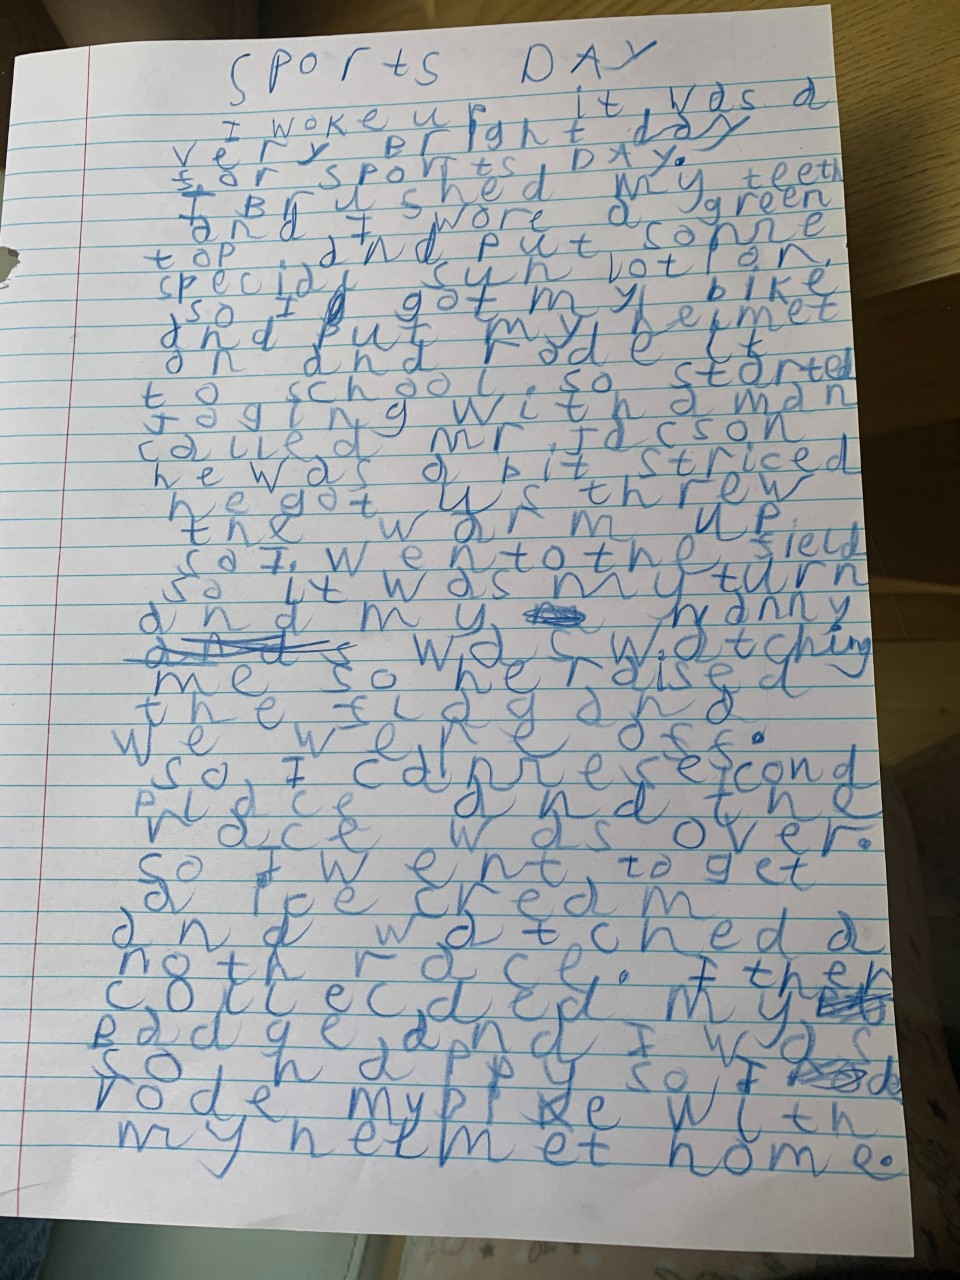 SPOrts DAY
I woke up it was a
very Bright day
for sports DAY.
I Brushed my teeth
and I wore a green
top. and put some
special sun lotion.
so I got my bike
and put my helmet
on and rode it
to school. so started
joging with a man
called mr. Jacson
he was a bit striced
he got us threw
the warm up
so I. went to the field
so it was my turn
and my nanny
was watching
me so he raised
the flag and
we were off.
so, I came second
place and the
race was over.
so I went to get
a ice cream
and watched a
noth race. I then
collecded my
Badge and I was
so happy so I
rode my bike with
my helmet home.